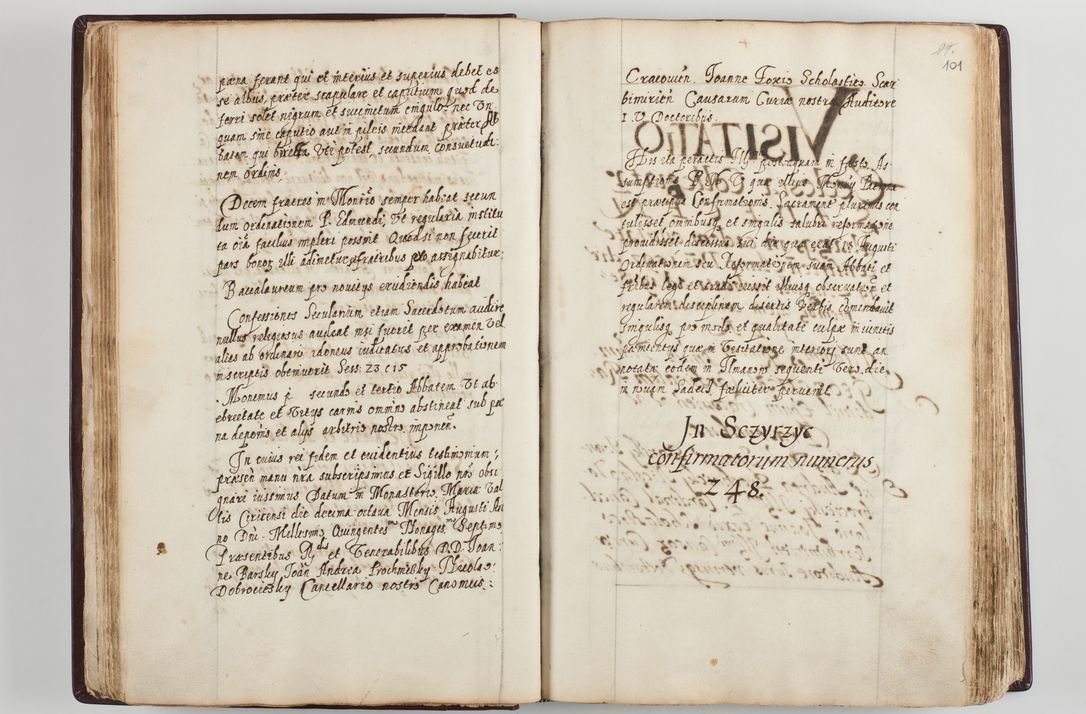 pœna ferant qui et interius et superius debet es
se albus, præter scapulare et caputium quod de
ferri solet nigrum et succinctum cingulo, nec un
quam sine caputio aut in pileis incedant præter Ab
batem qui biretta uti potest, secundum consuetudi:
nem ordinis.
Decem fratres in Monrio semper habeat secun
dum ordinationem P. Edmundi, ut regularia institu
ta oia facilius impleri possint Quod si non fecerit
pars bonor illi adimetur, et fratribus assignabitur:
Baccalaureum pro novitys erudiendis habeat
Confessiones Secularium etiam Sacerdotum audire
nullus religiosus audeat nisi fuerit per examen vel
alias ab ordinario idoneus iudicatus et approbationem
in scriptis obtinuerit Sess: 23 c 15
Monemus p secundo et tertio Abbatem ut ab
ebrietate et vitys carnis omnino abstineat sub pœ
na depōnis et alys arbitrio nostro imponen.
In cuius rei fidem et evidentius testimonium;
præsen manu nra subscripsimus et Sigillo nro obsi
gnari iussimus Datum in Monasterio, Mariæ Val
lis Ciricensi die decima octava Mensis Augusti An
no Dni Millesimo Quingentesmo Nonagesmo Septimo
Præsentibus Rdis et Venerabilibus D.D. Joan:
ne Barsky Joan Andrea Prochnisky Nicolao
Dobrociesky Cancellario nostro Canonicis:
101
Cracovien. Joanne Foxio Scholastico Scar
bimirien Causarum Curiæ nostræ Auditore
I. V. Doctoribus.
VISITATIO
His ita peractis Illmus postquam in festo As
sumptionis B. M. V. quæ illius Monrii Patrona
est præcipua Confirmationis Sacramentum plurimis con
tulisset omnibusq et singulis salubri reformatione
providisset discessus sui die quæ erat 18 Augusti
Ordinationem seu Reformationem suam Abbati et
fratribus legi et tradi iussit illiusq observationem et
regularem disciplinam disertis verbis comendavit
singulisq pro modo et qualitate culpæ iniunctis
pœnitentys quæ in Visitatione interiori sunt an
notatæ eodem in Ilmanow sequenti vero die
in novam Sandecz fœliciter pervenit
In Sczyrzyc
confirmatorum numerus
248.